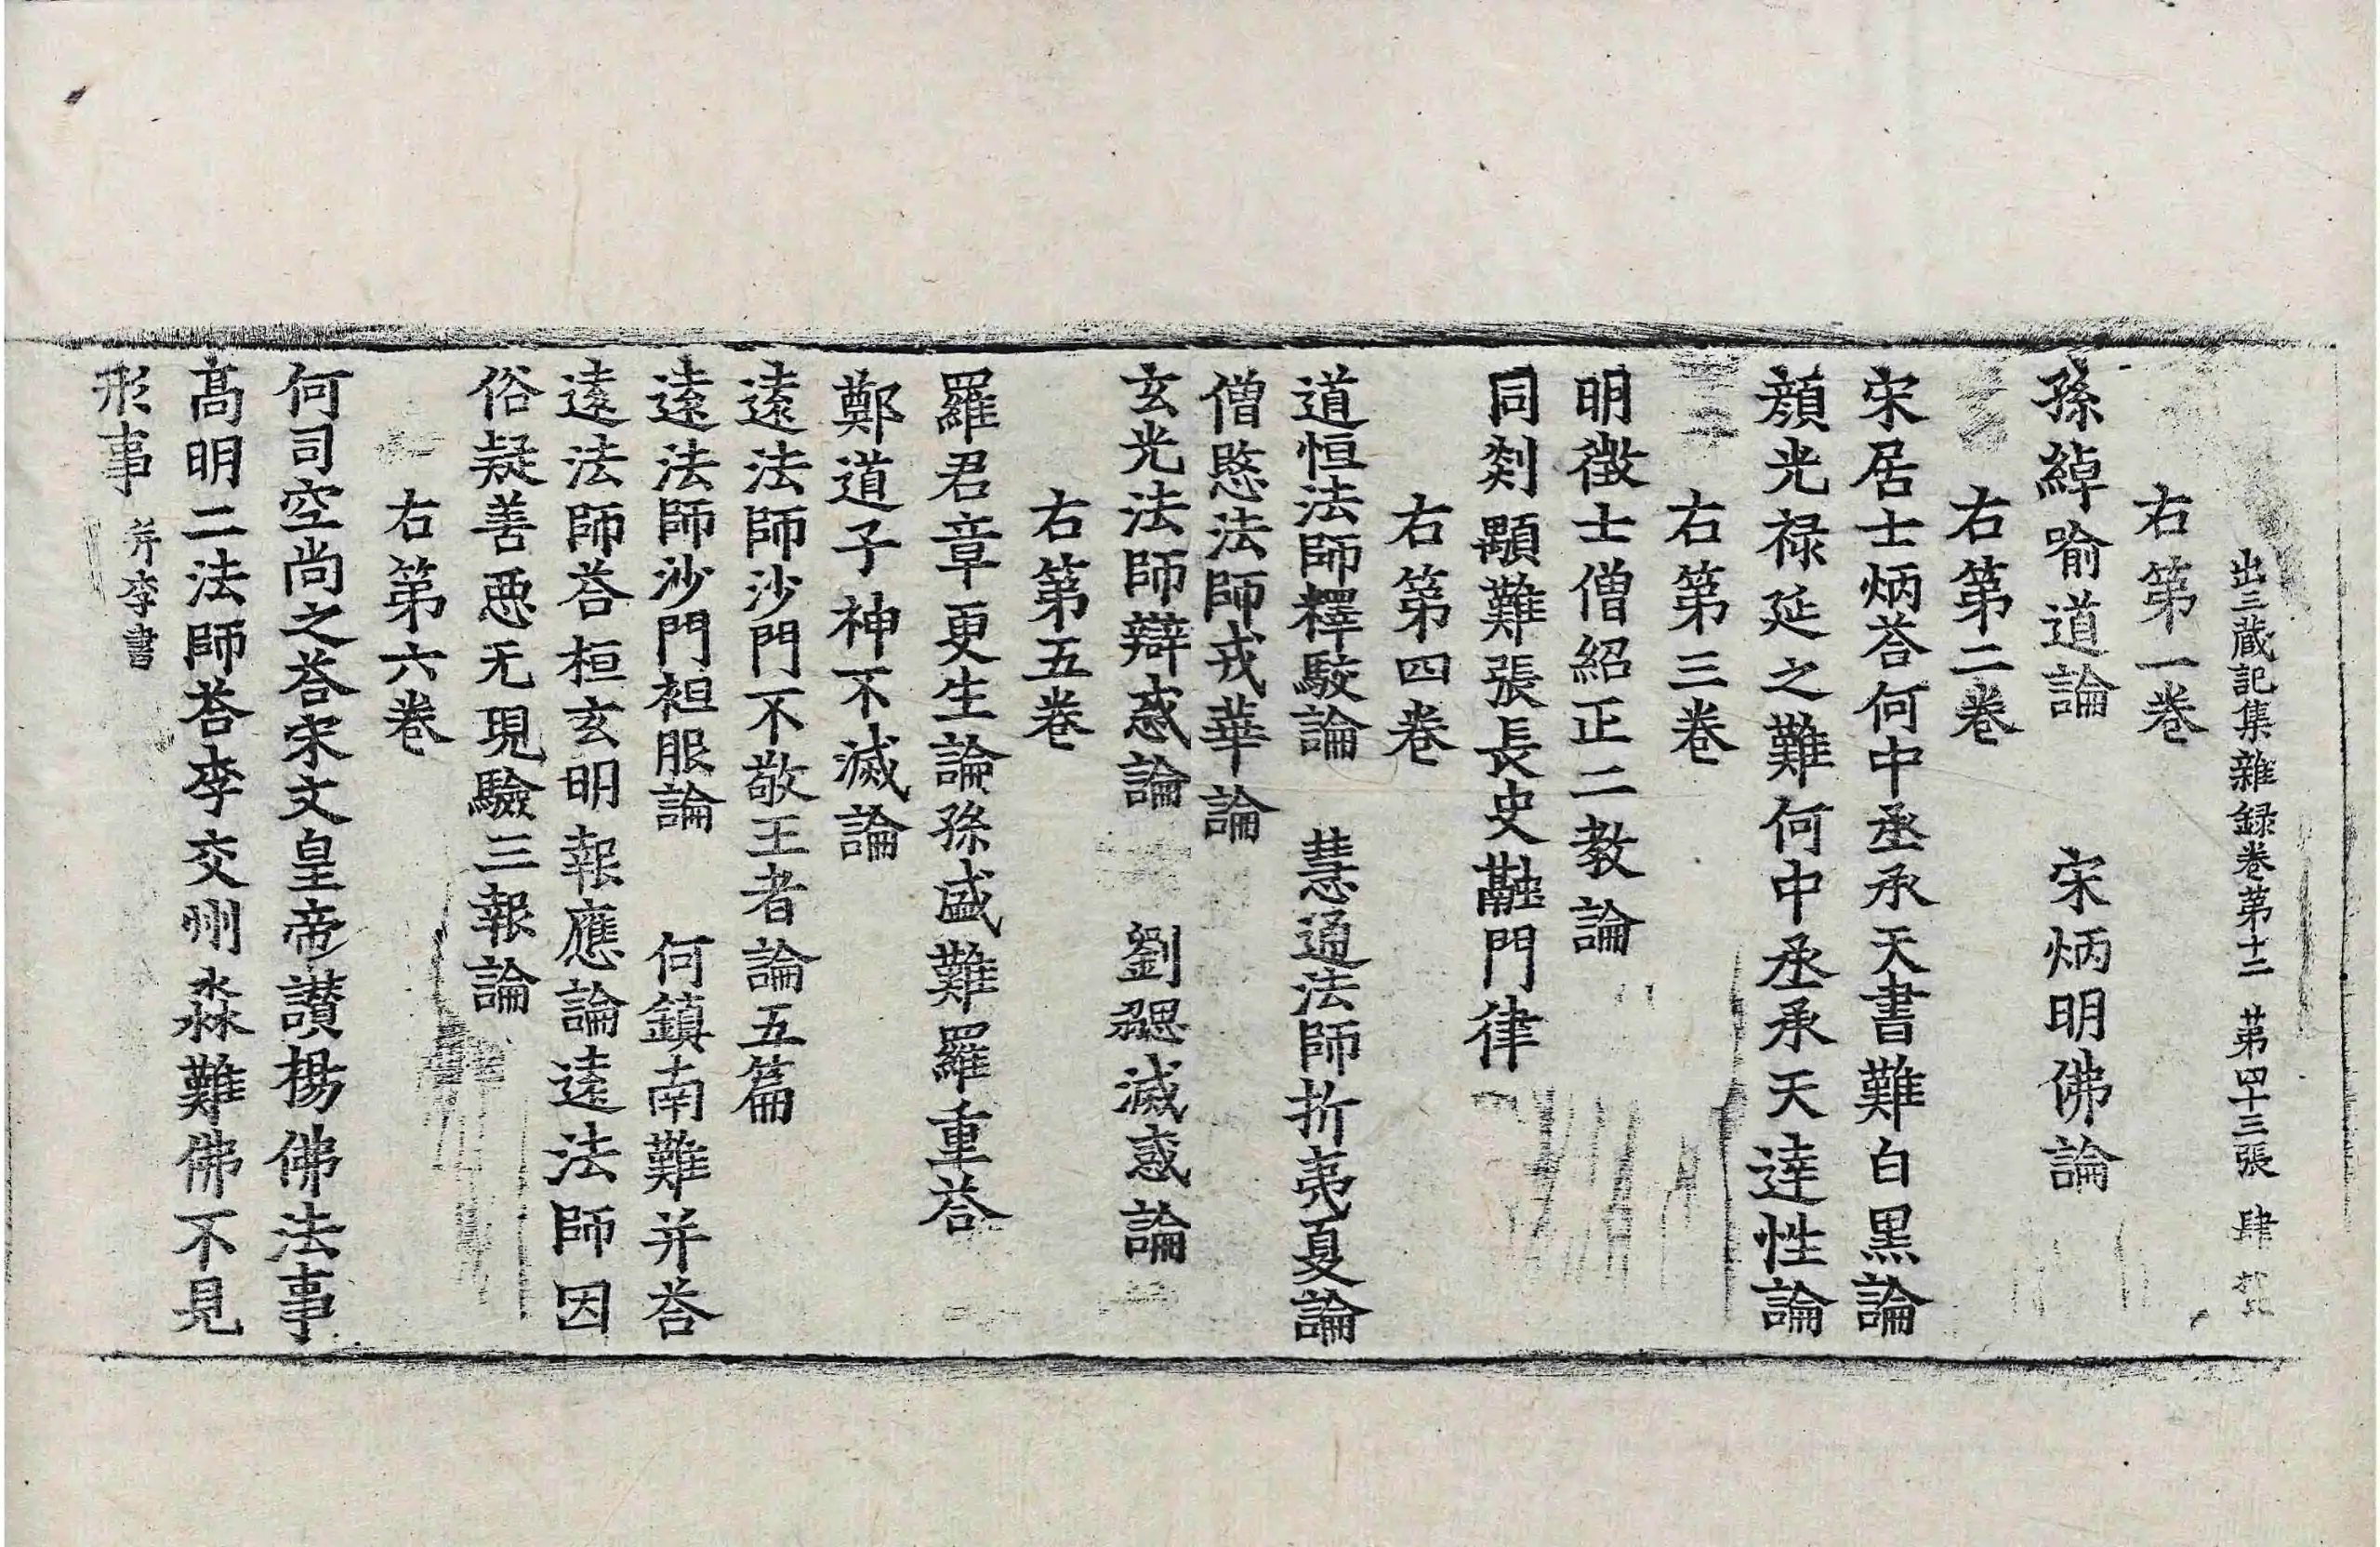 出三藏記集雜録卷第十二 苐四十三張 肆
右第一卷
孫綽喻道論 宋炳明佛論
右第二卷
宋居士炳荅何中丞承天書難白黒論
顔光禄延之難何中丞承天達性論
右第三卷
明徴士僧紹正二教論
同剡顒難張長史融門律
右第四卷
道恒法師釋駮論 慧通法師折夷夏論
僧愍法師戎華論
玄光法師辯惑論 劉勰滅惑論
右第五卷
羅君章更生論孫盛難羅重荅
鄭道子神不滅論
遠法師沙門不敬王者論五篇
遠法師沙門袒服論 何鎮南難并荅
遠法師荅桓玄明報應論遠法師因
俗疑善惡无現驗三報論
右第六卷
何司空尚之荅宋文皇帝讃楊佛法事
髙明二法師荅李交州淼難佛不見
形事 并李書